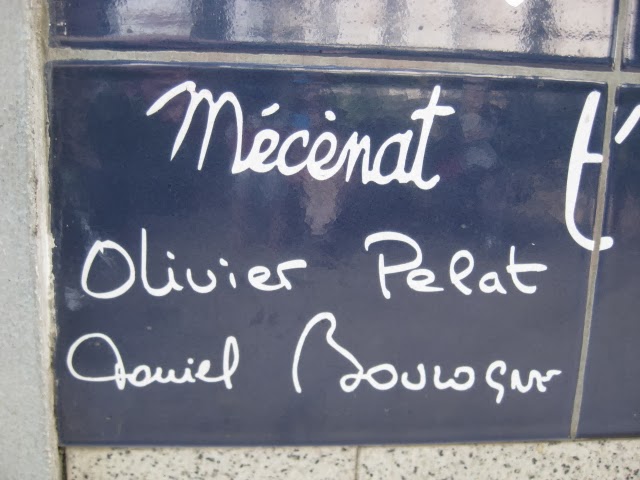 Mécènat
Olivier Pelat
Daniel Boulogne